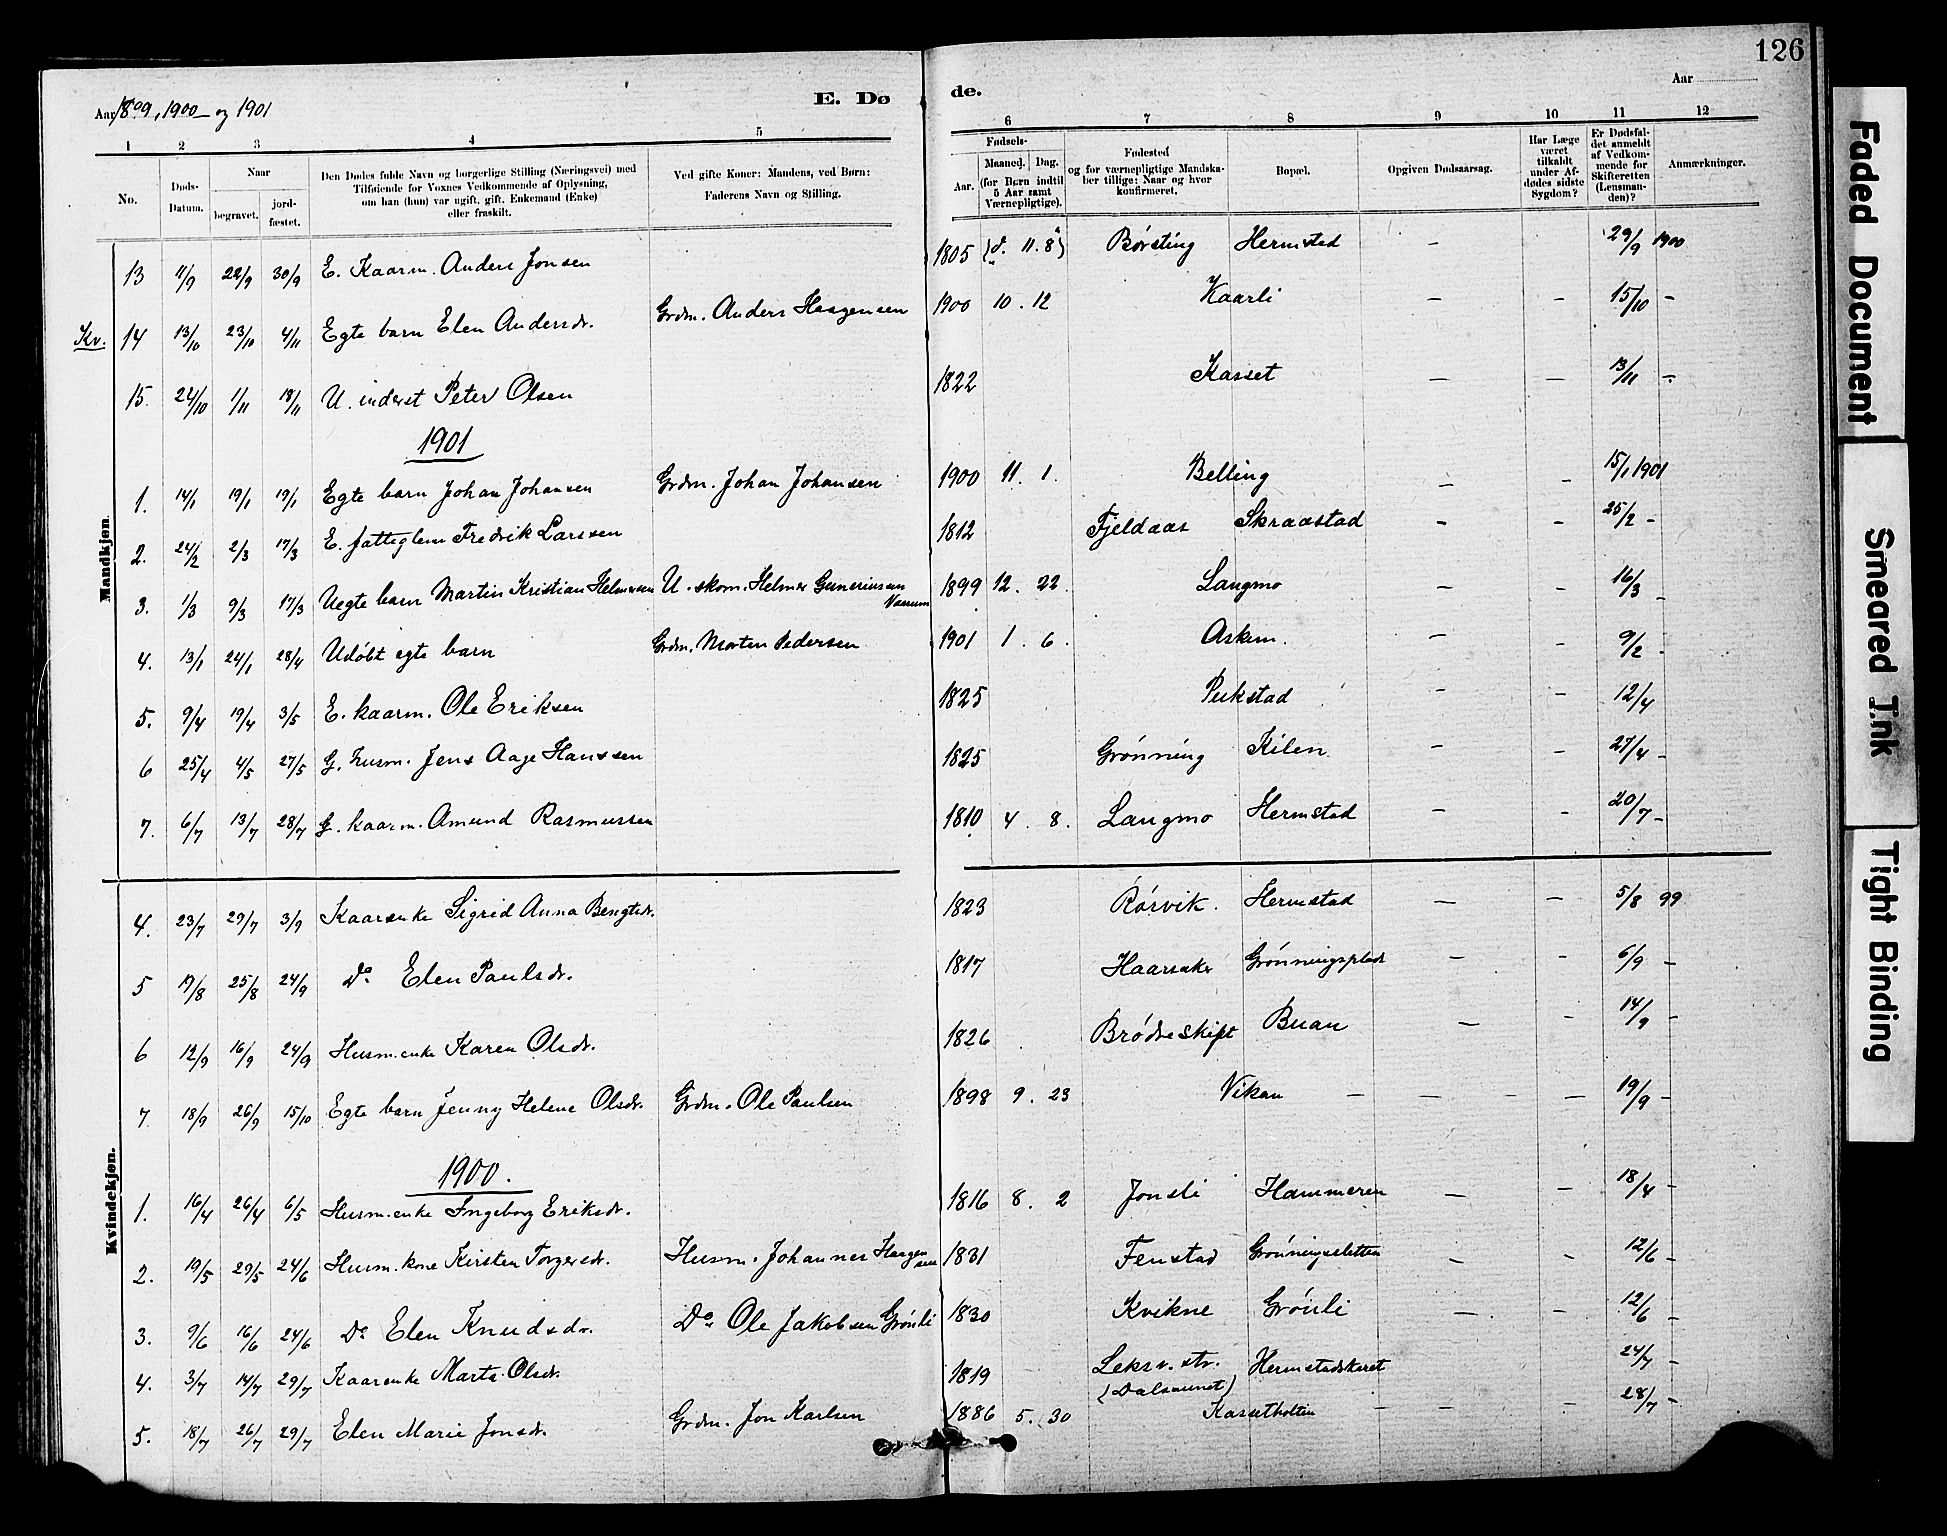 126
Aar 1899, 1900 og 1901
E. Dø
de.
Aar
1 2 3 4 5 6 7 8 9 10 11 12
No.
Døds-Datum.
Naar
begravet.
jord-fæstet.
Den Dødes fulde Navn og borgerlige Stilling (Næringsvei) med
Tilføiende for Voxnes Vedkommende af Oplysning,
om han (hun) var ugift, gift, Enkemand (Enke)
eller fraskilt.
Ved gifte Koner: Mandens, ved Børn:
Faderens Navn og Stilling.
Fødsels-
Aar.
Maaned. Dag.
(for Børn indtil
5 Aar samt
Værnepligtige).
Fødested
og for værnepligtige Mandska-
ber tillige: Naar og hvor
konfirmeret.
Bopæl.
Opgiven Dødsaarsag.
Har Læge
været
tilkaldt
under Af-
dødes sidste
Sygdom?
Er Dødsfal-
det anmeldt
af Vedkom-
mende for
Skifteretten
(Lensman-
den)?
Anmærkninger.
Mandkjøn.
13 11/9 22/9 30/9 E. Kaarm. Anders Jonsen 1805 (d. 11. 8) Børsting Hermstad — 29/9 1900
Kv. 14 13/10 23/10 4/11 Egte barn Elen Andersdr. Grdm. Anders Haagensen 1900 10. 12 Kaarli — — 15/10 —
15. 24/10 1/11 18/11 U. inderst Peter Olsen 1822 Kasset — — 13/11 —
1901
1. 14/1 19/1 19/1 Egte barn Johan Johansen Grdm. Johan Johansen 1900 11. 1. Belling — — 15/1 1901
2. 24/2 2/3 17/3 E. fattiglem Fredrik Larssen 1812 Fjeldaas Skraastad — — 25/2 —
3. 1/3 9/3 17/3 Uegte barn Martin Kristian Helmersen U. skom. Helmer Guneriussen 1899 12. 22. Langmo — — 16/3 —
4. 13/1 24/1 28/4 Udöbt egte barn Grdm. Morten Pedersen 1901 1. 6. Askim. — — 9/2 —
5. 9/4 19/4 3/5 E. kaarm. Ole Eriksen 1825 Pukstad — — 12/4
6 25/4 4/5 27/5 G. husm. Jens Aage Hanssen 1825 Grónning Kilen — — 27/4 —
7. 6/7 13/7 28/7 G. kaarm. Amund Rasmussen 1810 4. 8. Langmo Hermstad — — 20/7 —
Kvindekjøn.
4. 23/7 29/7 3/9 Kaarenke Sigrid Anna Bengtsdr. 1823 Rórvik. Hermstad — — 5/8 99
5 19/8 25/8 24/9 Do Elen Paulsdr. 1817 Haarsaker Grónningsplads — — 6/9 —
6 12/9 16/9 24/9 Husm.enke Karen Olsdr. 1826 Bródreskift Buan — — 14/9 —
7. 18/9 26/9 15/10 Egte barn Jenny Helene Olsdr. Grdm. Ole Paulsen 1898 9. 23 Vikan — — — — 19/9 —
1900.
1. 16/4 26/4 6/5 Husm.enke Ingeborg Eriksdr. 1816 8. 2 Jonsli Hammeren — — 18/4 —
2. 19/5 29/5 24/6 Husm.kone Kirsten Torgersdr. Husm. Johannes Haagensen 1831 Fenstad Grónningsletten — — 12/6 —
3. 9/6 16/6 24/6 Do Elen Knudsdr. Do Ole Jakobsen Grónli 1830 Kvikne Grónli — — 12/6 —
4. 3/7 14/7 29/7 Kaarenke Marta Olsdr. 1819 Leksv. str. (Dalsaunet) Hermstadskeret 24/7 —
5. 18/7 26/7 29/7 Elen Marie Jonsdr. Grdm. Jon Karlsen 1886 5. 30 Kassetholten — — — 28/7 —
Faded Document
Smeared Ink
Tight Binding